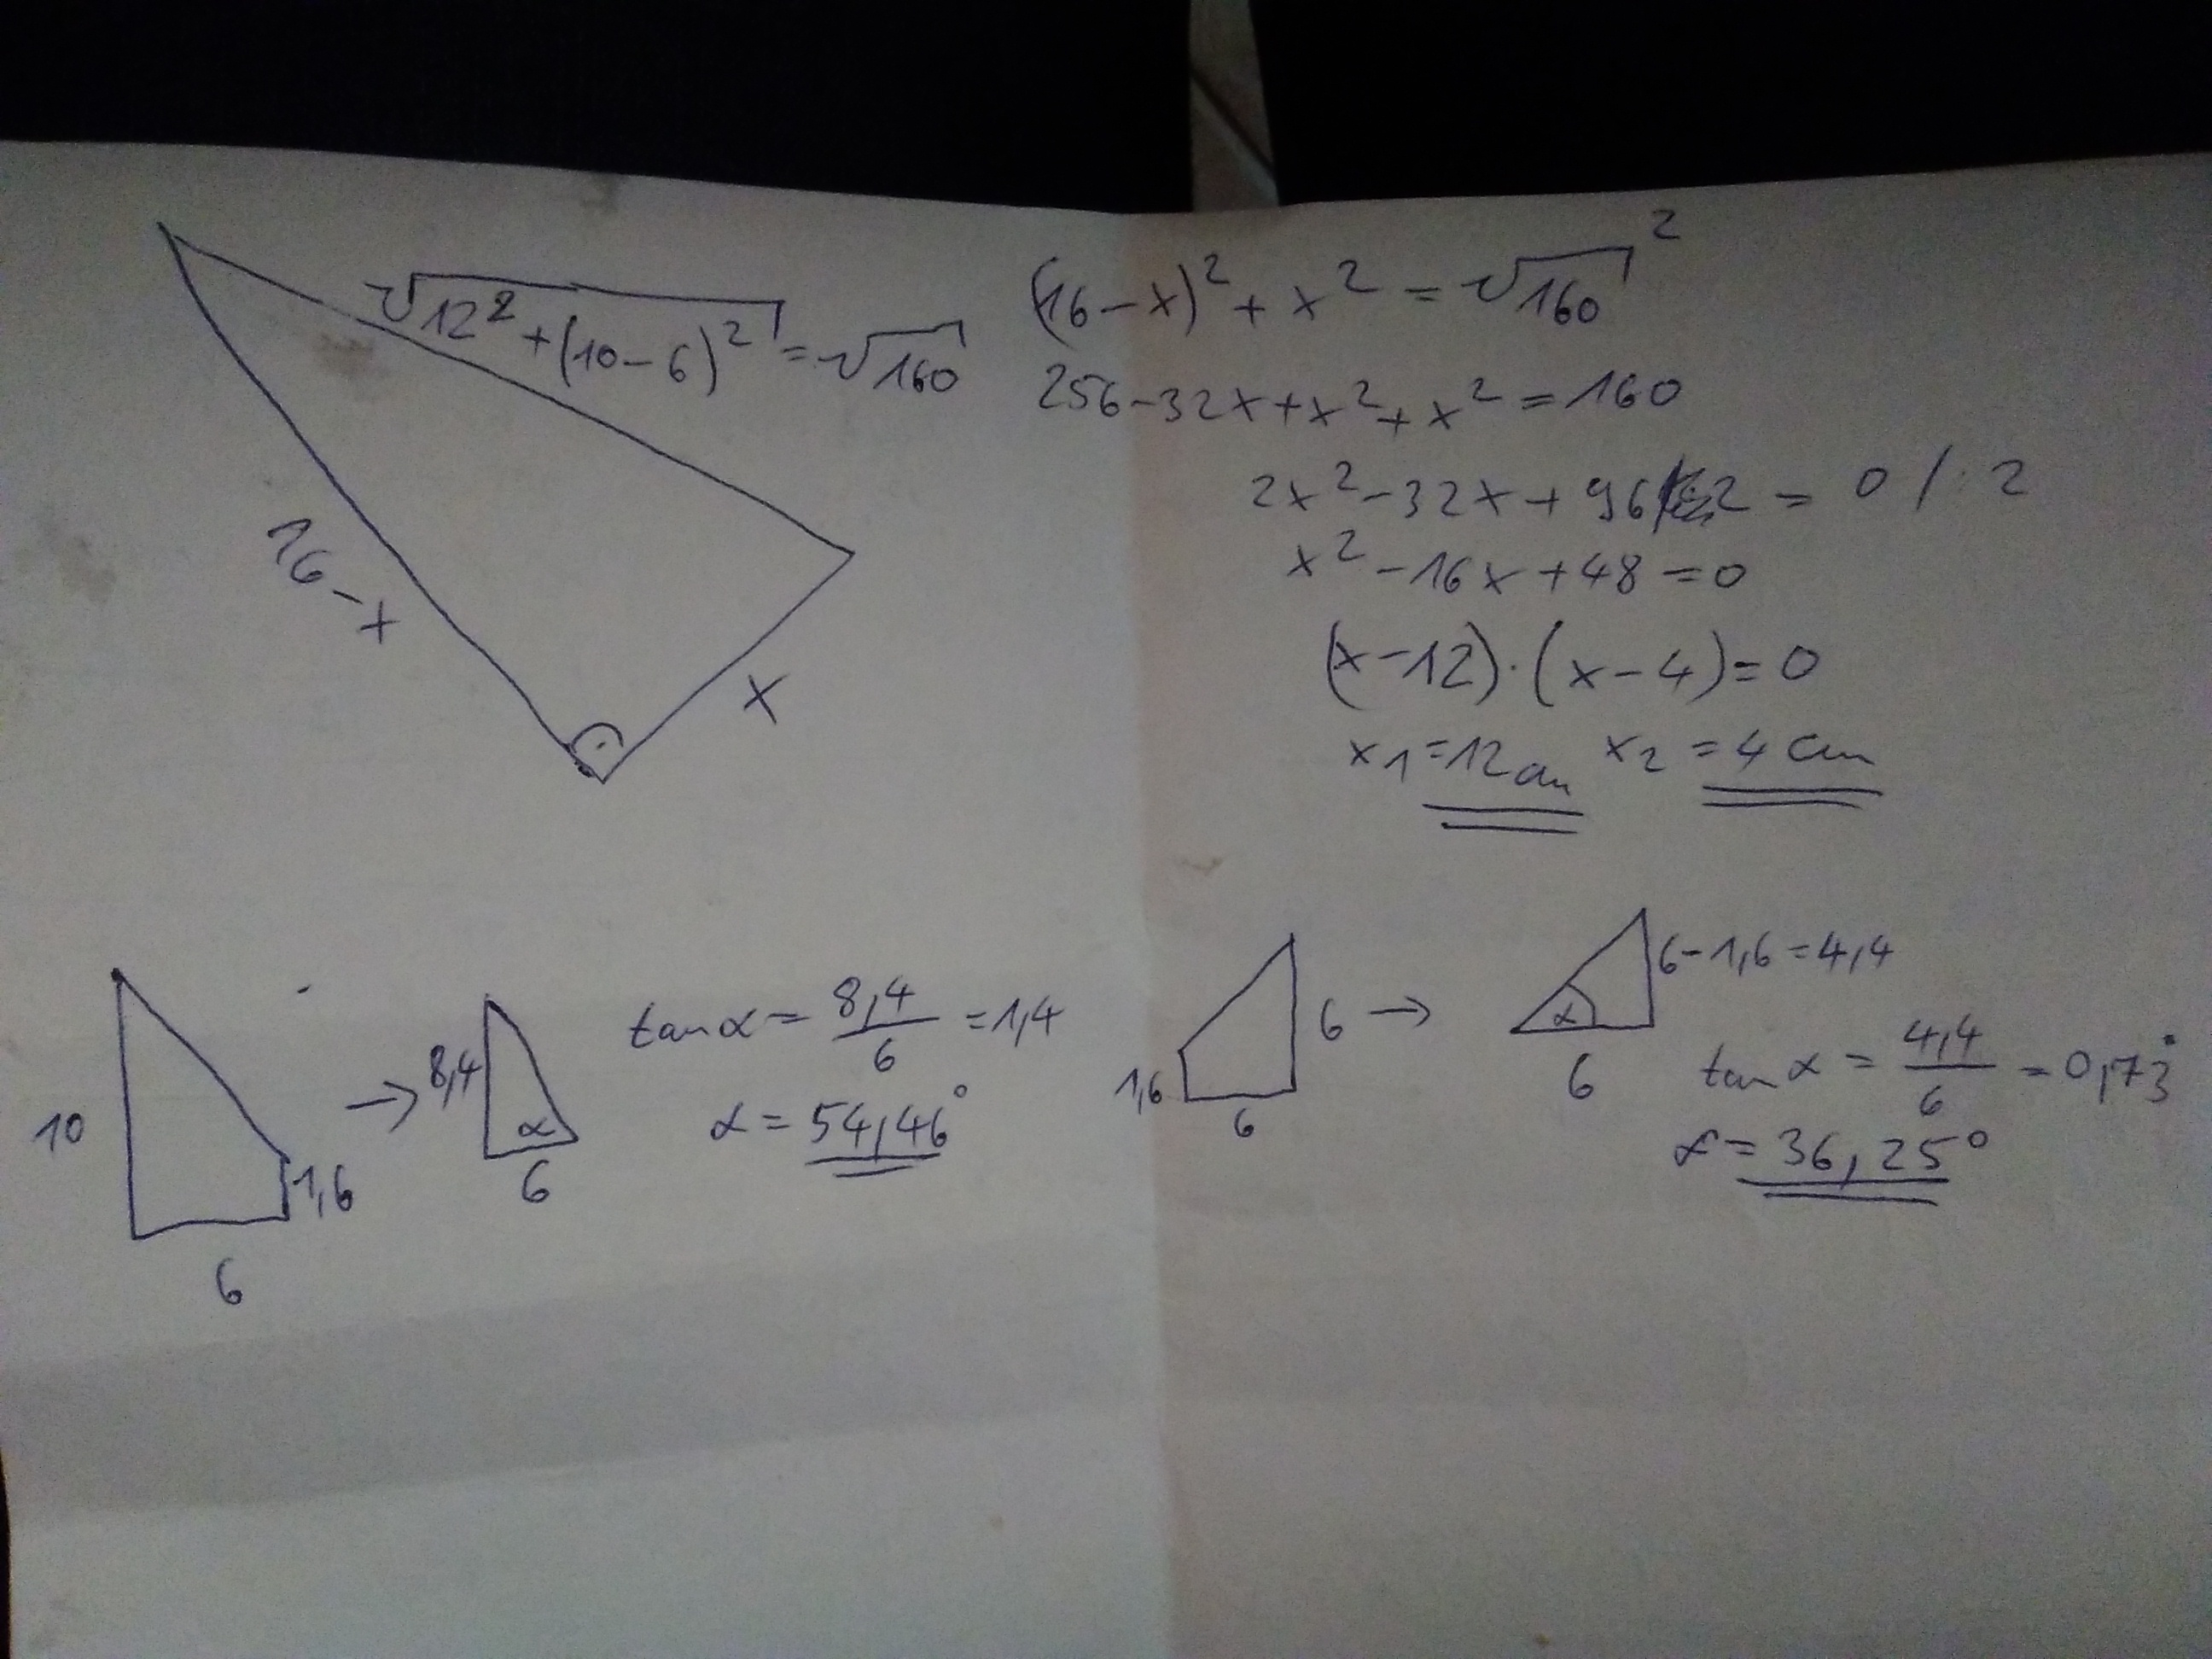 √12² + (10-6)² = √160
16-x
x
(16-x)² + x² = √160²
256-32x+x²+x² = 160
2x²-32x+96 = 0 /:2
x²-16x+48=0
(x-12)·(x-4)=0
x1=12cm x2=4cm
10
1,6
6
→
8,4
α
6
tan α = 8,4/6 = 1,4
α = 54,46°
1,6
6
6 →
α
6-1,6=4,4
6
tan α = 4,4/6 = 0,73̇
α = 36,25°